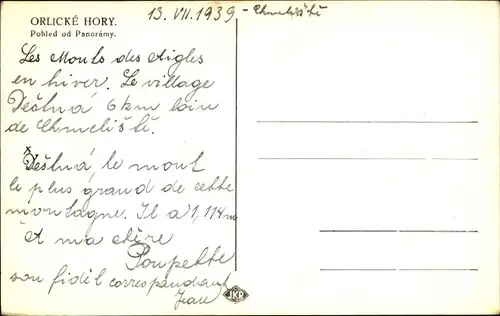 ORLICKÉ HORY.
Pohled od Panorámy.
13. VII. 1939 - Chmeliští
Les Monts des Aigles
en hiver. Le village
Deštná 6 km loin
de Chmeliští.
Deštná, le mont
le plus grand de cette
montagne. Il a 1,114m
Et ma chère
Poupette
son fidèl correspondant
Jean
JKO